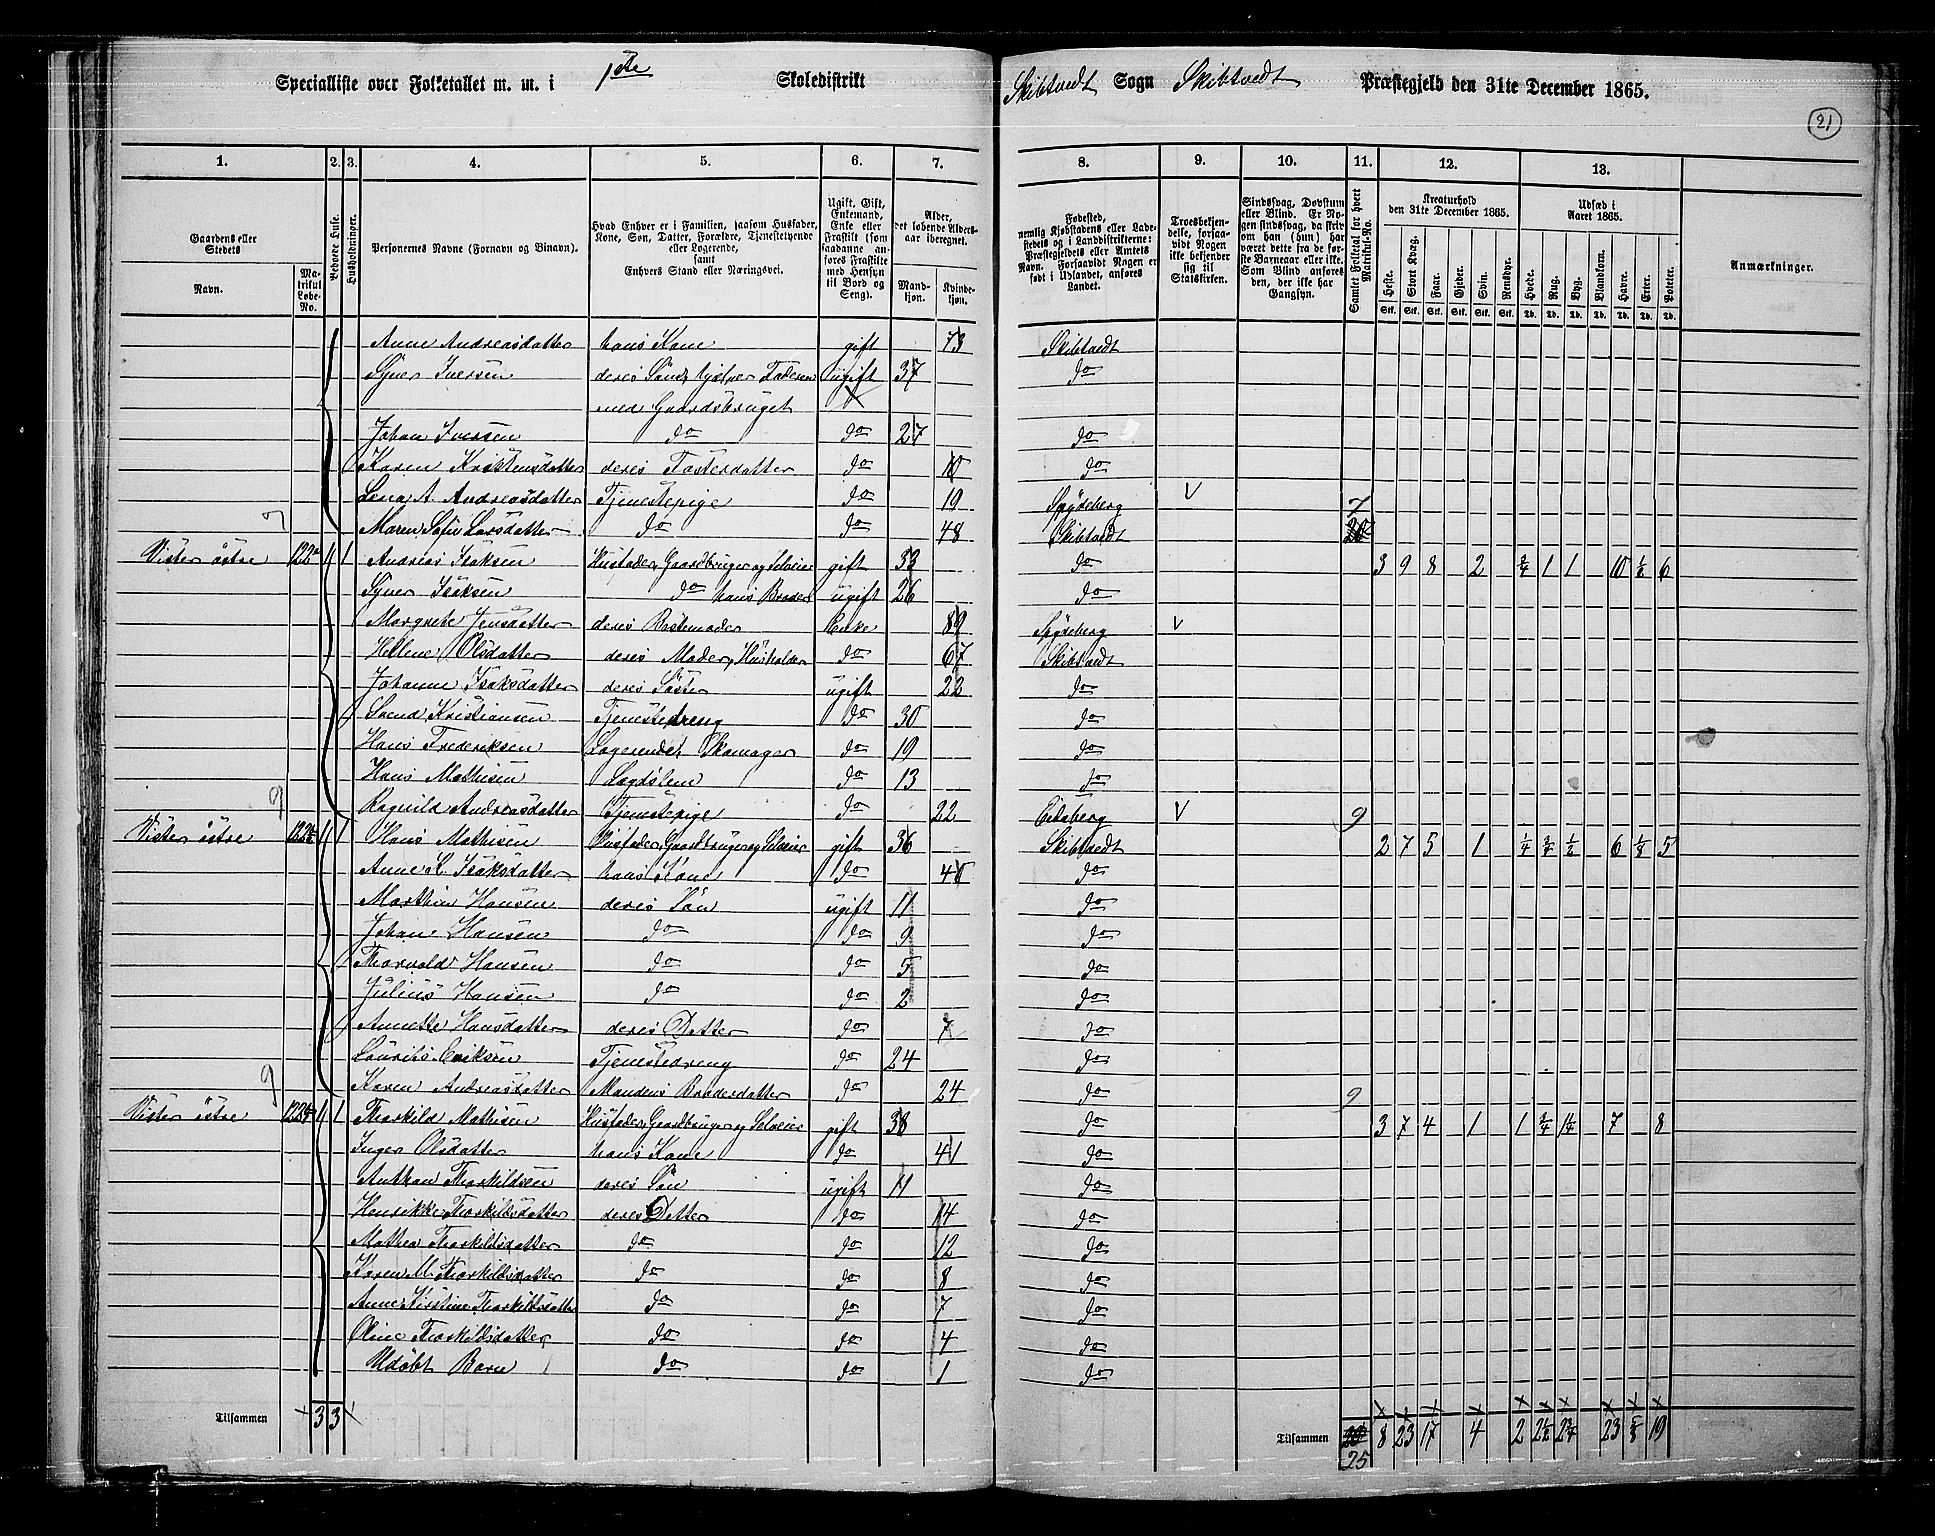 Specialliste over Folketallet m. m. i 1ste Skoledistrikt Skibtvedt Sogn Skibtvedt Præstegjeld den 31te December 1865.
21
1. 2. 3. 4. 5. 6. 7. 8. 9. 10. 11. 12. 13.
Gaardens eller Stedets
Navn. Matrikul Løbe-No.
Beboede Huse.
Husholdninger.
Personernes Navne (Fornavn og Binavn).
Hvad Enhver er i Familien, saasom Husfader, Kone, Søn, Datter, Forældre, Tjenestetyende eller Logerende, samt Enhvers Stand eller Næringsvei.
Ugift, Gift, Enkemand, Enke eller Fraskilt (som saadanne anføres Fraskilte med Hensyn til Bord og Seng).
Alder, det løbende Aldersaar iberegnet.
Mandkjøn. Kvindekjøn.
Fødested, nemlig Kjøbstadens eller Ladestedets og i Landdistrikterne: Præstegjeldets eller Amtets Navn. Forsaavidt Nogen er født i Udlandet, anføres Landet.
Troesbekjendelse, forsaavidt Nogen ikke bekjender sig til Statskirken.
Sindssvag, Døvstum eller Blind. Er Nogen sindssvag, da skriv om han (hun) har været dette fra de første Barneaar eller ikke. Som Blind anføres den, der ikke har Gangsyn.
Samlet Folketal for hvert Matrikul-No.
Kreaturhold den 31te December 1865.
Heste. Stort Kvæg. Faar. Gjeder. Svin. Rensdyr.
Udsæd i Aaret 1865.
Hvede. Rug. Byg. Blandkorn. Havre. Erter. Poteter.
Anmærkninger.
Anne Andreasdatter hans Kone gift 73 Skibtvedt
Syver Iversen deres Søn, hjelper Faderen ugift 37 do
med Gaardsbruget
Johan Iversen do do 27 do
Karen Kristensdatter deres Fosterdatter do 10 do
Lena A. Andreasdatter Tjenestepige do 19 Spydeberg V 7
7 Maren Sofie Larsdatter do do 48 Skibtvedt
Vister østre 122a 1 1 Andreas Isaksen Husfader, Gaardbruger og Selveier gift 33 do 3 9 8 2 3/4 1 1 10 1/2 6
Syver Isaksen do hans Broder ugift 26 do
Margrete Jensdatter deres Bestemoder Enke 89 Spydeberg V
Hellene Olsdatter deres Moder, Husholder do 67 Skibtvedt
Johanne Isaksdatter deres Søster ugift 22 do
Svend Kristiansen Tjenestedreng do 30 do
Hans Frederiksen Logerende, Skomager do 19 do
Hans Mathisen Lægdslem do 13 do
9 Ragnild Andreasdatter Tjenestepige do 22 Eidsberg V 9
Vister østre 122 1 1 Hans Mathisen Husfader, Gaardbruger og Selveier gift 36 Skibtvedt 2 7 5 1 1/4 3/4 1/2 6 1/8 5
Anne L. Isaksdatter hans Kone do 40 do
Marthin Hansen deres Søn ugift 11 do
Johan Hansen do do 9 do
Thorvald Hansen do do 5 do
Julius Hansen do do 2 do
Annette Hansdatter deres Datter do 7 do
Laurits Eriksen Tjenestedreng do 24 do
9 Karen Andreasdatter Mandens Broderdatter do 24 do 9
Vister østre 122 1 1 Thorkild Mathisen Husfader, Gaardbruger og Selveier gift 38 do 3 7 4 1 1 3/4 1 1/4 7 8
Inger Olsdatter hans Kone do 41 do
Anthon Thorkildsen deres Søn ugift 11 do
Henrikke Thorkildsdatter deres Datter do 14 do
Mathea Thorkildsdatter do do 12 do
Karen M. Thorkildsdatter do do 8 do
Anne Kirstine Thorkildsdatter do do 7 do
Oline Thorkildsdatter do do 4 do
Udøbt Barn do do 1 do
Tilsammen 3 3 Tilsammen 25 8 23 17 4 2 2 1/2 2 3/4 23 5/8 19